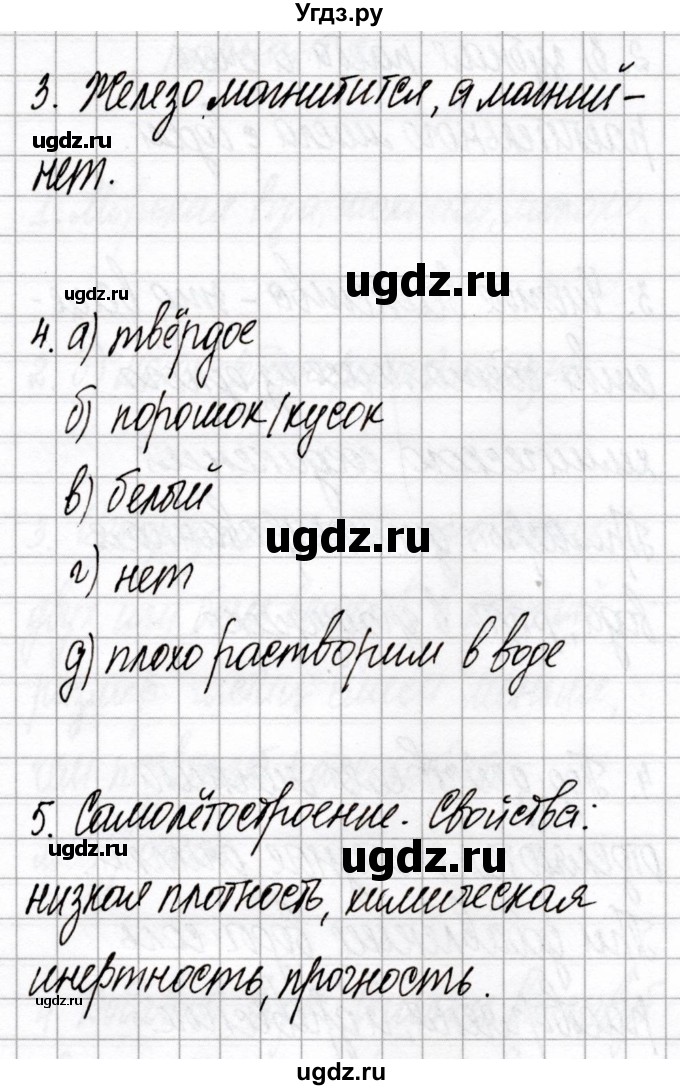 Угдз.ру
3. Железо магнитится, а магний –
ugdz.ru
нет.
ugdz.ru
ugdz.ru
4. а) твёрдое
б) порошок/кусок
в) белый
ugdz.ru
г) нет
д) плохо растворим в воде
5. Самолётостроение. Свойства:
ugdz.ru
ugdz.ru
низкая плотность, химическая
инертность, прочность.
ugdz.ru
ugdz.ru